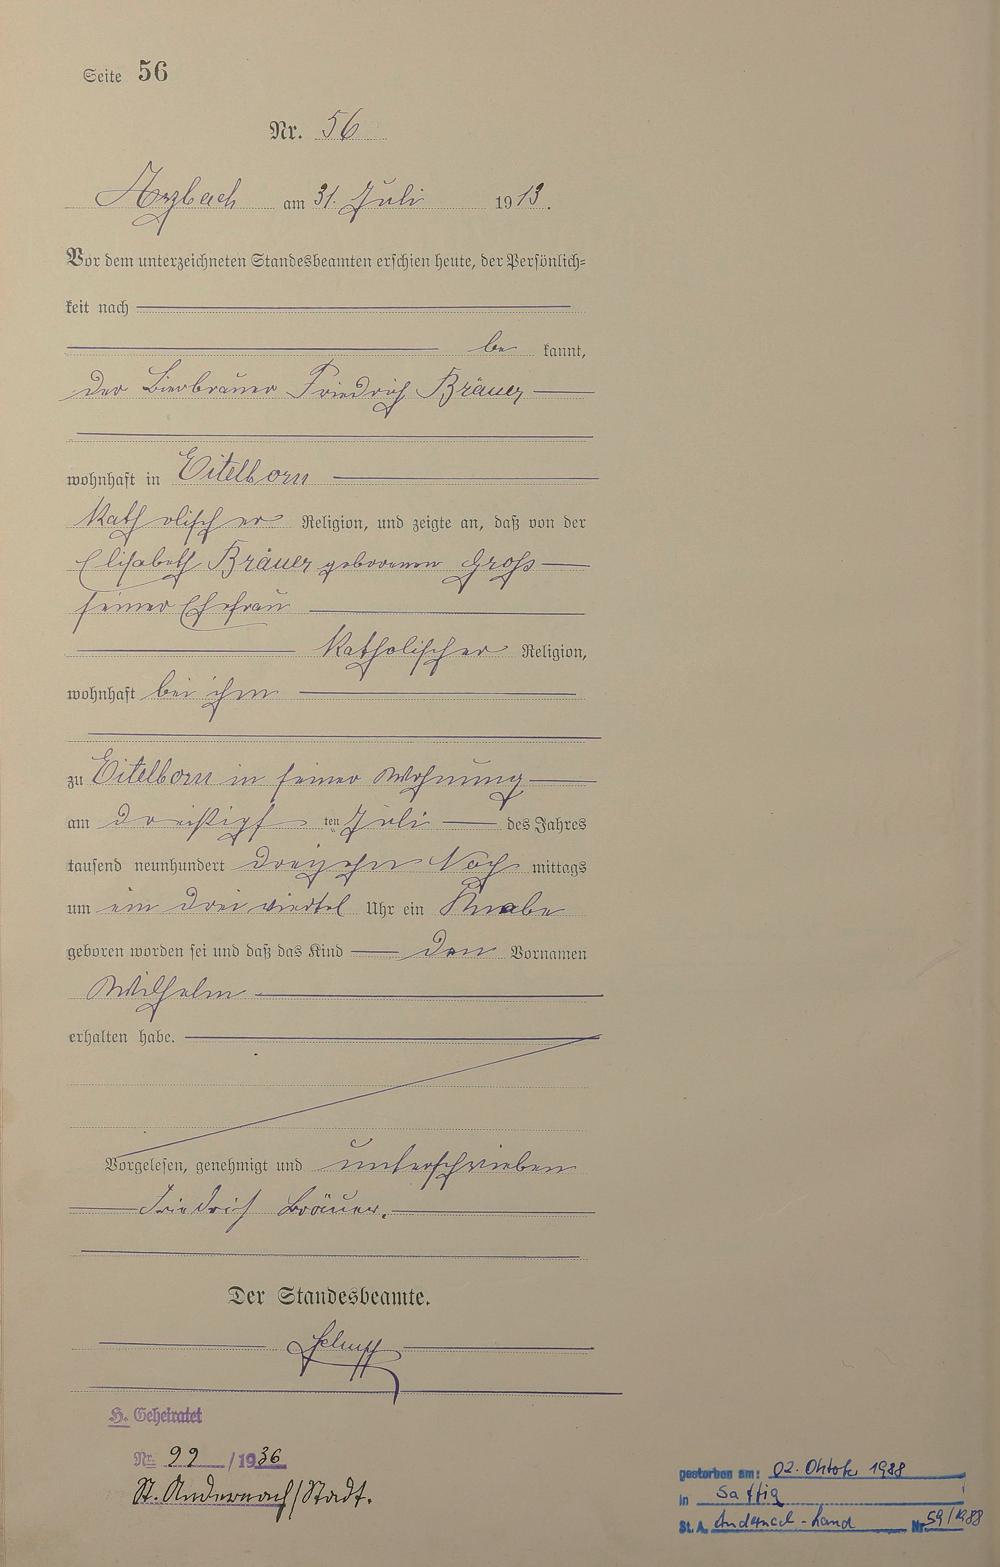 Seite 56
Nr. 56
Arzbach am 31. Juli 1913.
Vor dem unterzeichneten Standesbeamten erschien heute, der Persönlich=
keit nach
be kannt,
der Bierbrauer Friedrich Bräuer
wohnhaft in Eitelborn
katholischer Religion, und zeigte an, daß von der
Elisabeth Bräuer geborenen Groß
seiner Ehefrau
katholischer Religion,
wohnhaft bei ihm
zu Eitelborn in seiner Wohnung
am dreißigsten Juli des Jahres
tausend neunhundert dreizehn Nach mittags
um ein drei viertel Uhr ein Knabe
geboren worden sei und daß das Kind den Vornamen
Wilhelm
erhalten habe.
Vorgelesen, genehmigt und unterschrieben
Friedrich Bräuer.
Der Standesbeamte.
H. Geheiratet
Nr. 92 /1936
St. Andernach/Stadt.
gestorben am: 02. Oktober 1988
in Saffig
St. A. Andernach-Land Nr. 59/1988